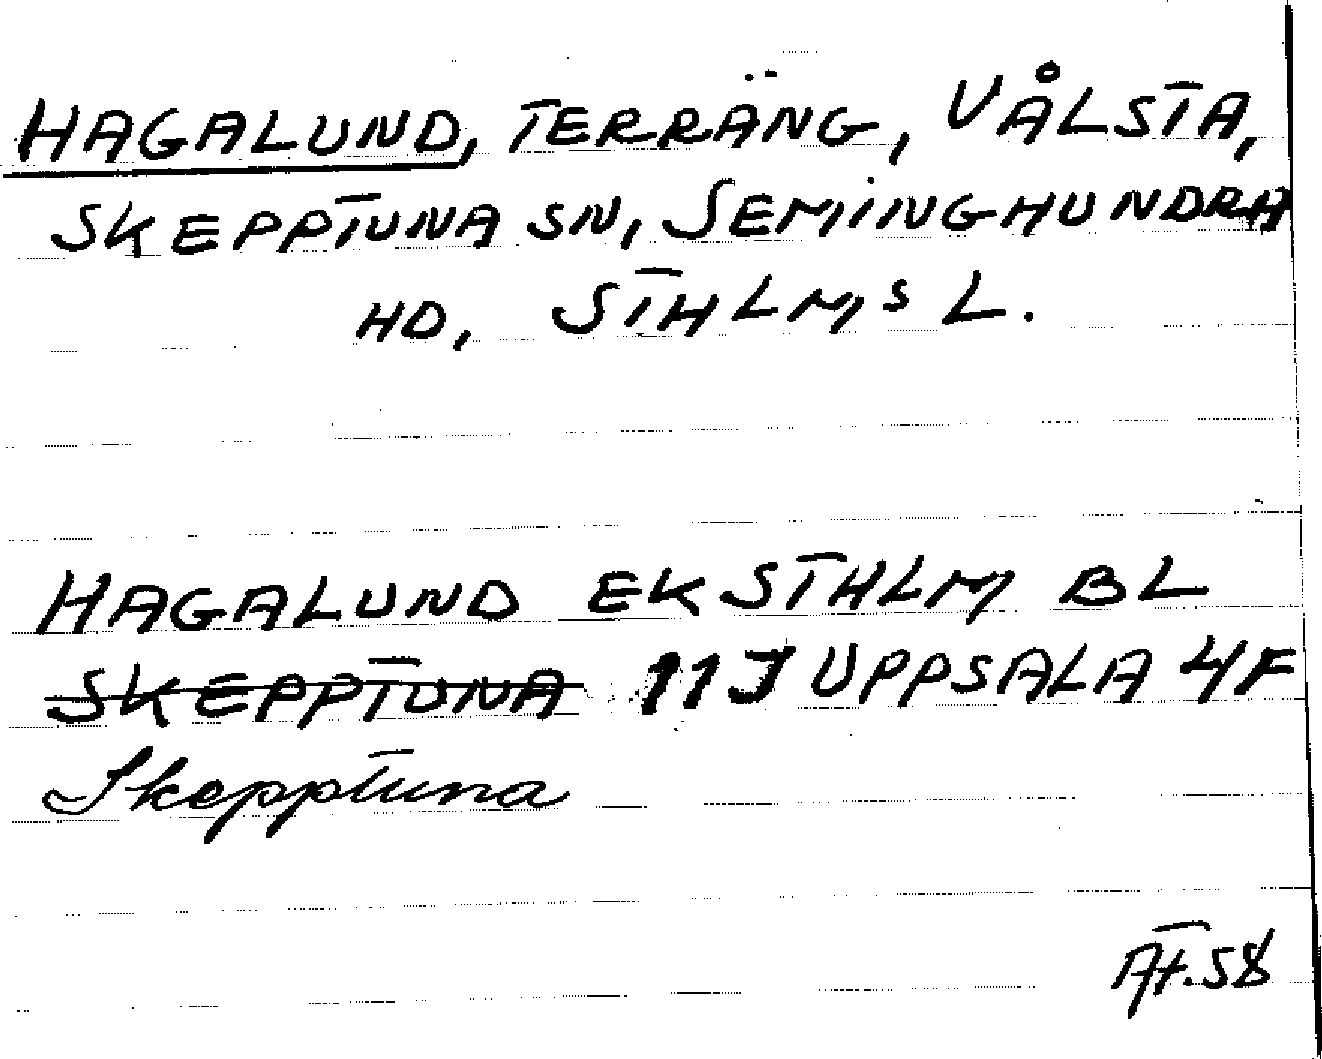 HAGALUND, TERRÄNG, VÅLSTA,
SKEPPTUNA SN, SEMINGHUNDRA
HD, STHLMS L.
HAGALUND EK STHLM BL
SKEPPTUNA 11J UPPSALA 4F
Skepptuna
AF.58